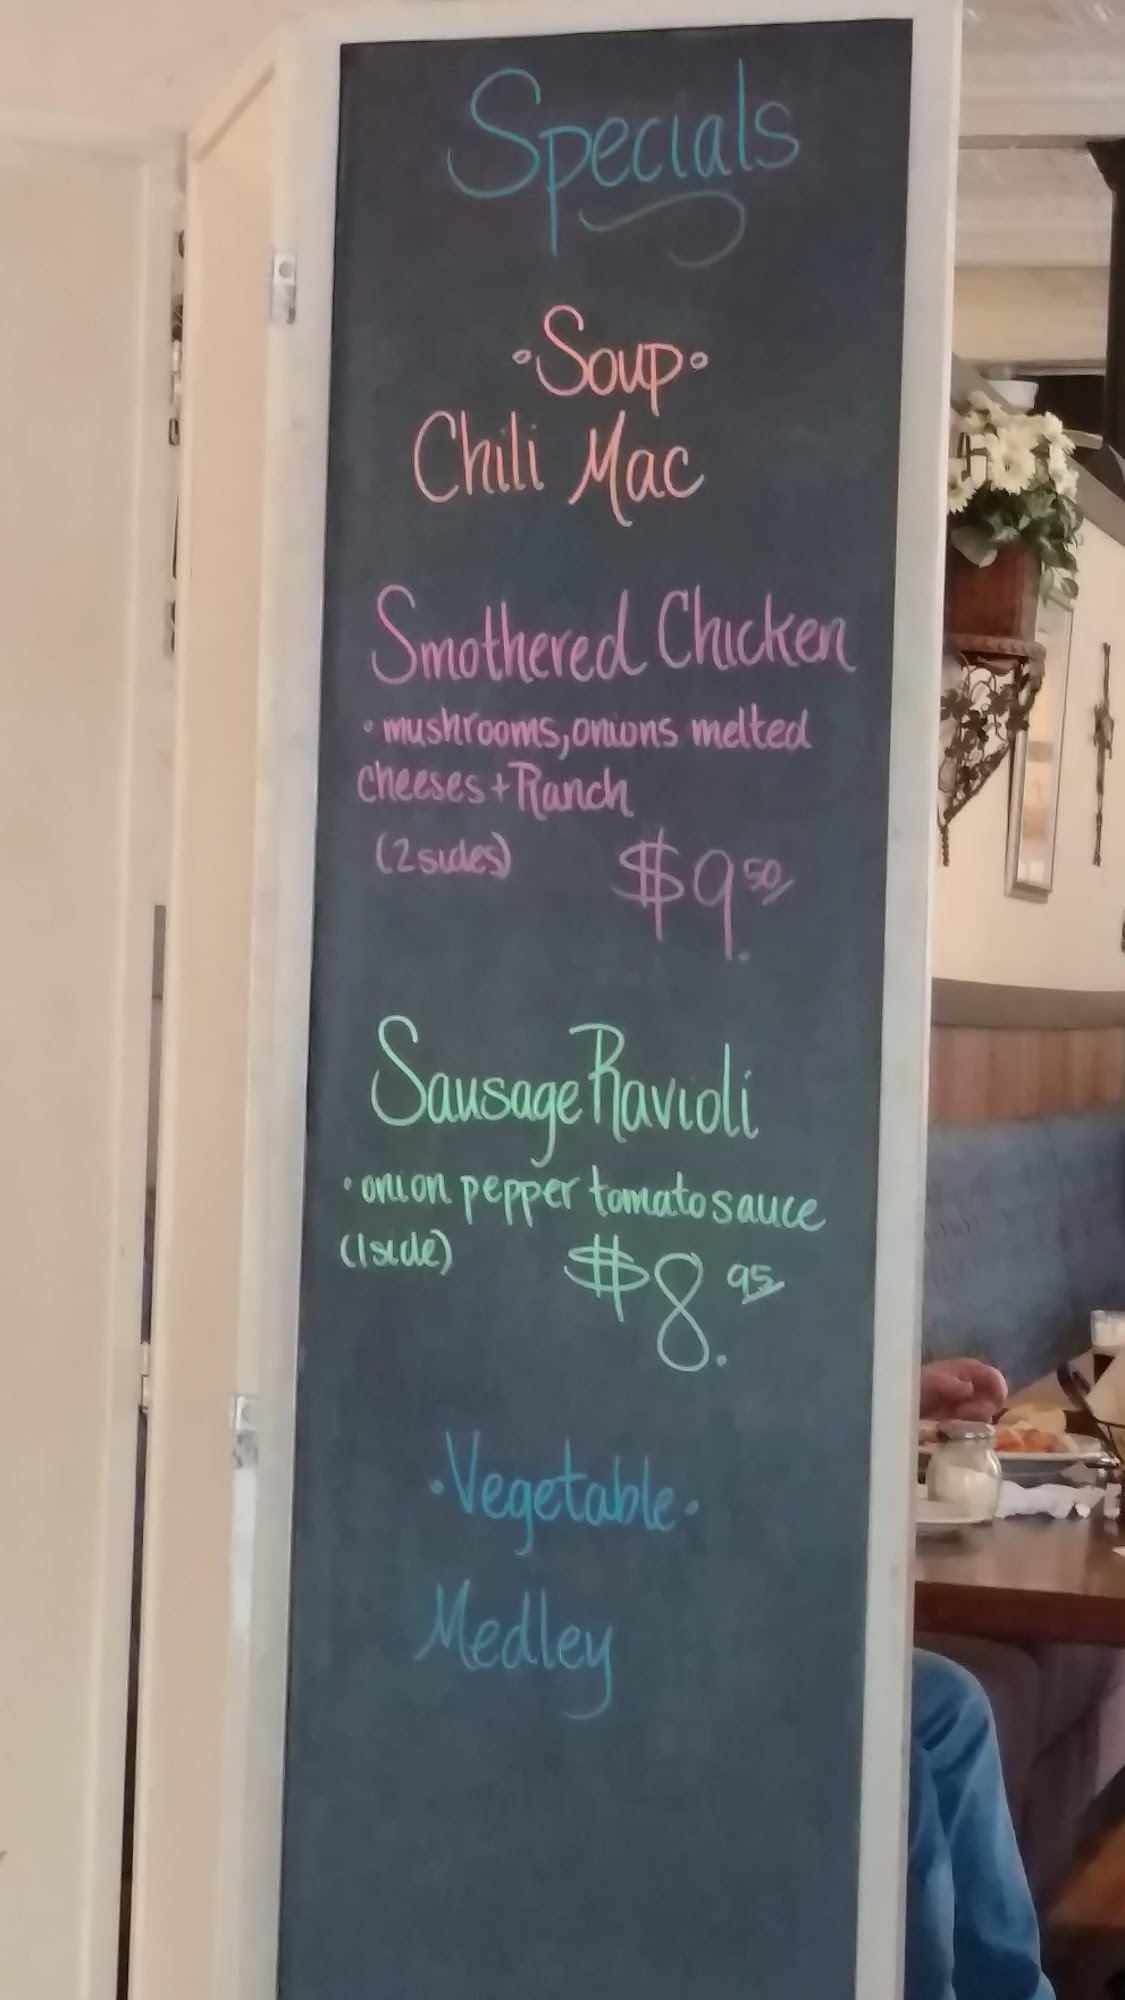 Specials
•Soup•
Chili Mac
Smothered Chicken
• mushrooms, onions melted
cheeses + Ranch
(2 sides) $9.50
Sausage Ravioli
• onion pepper tomato sauce
(1 side) $8.95
•Vegetable•
Medley